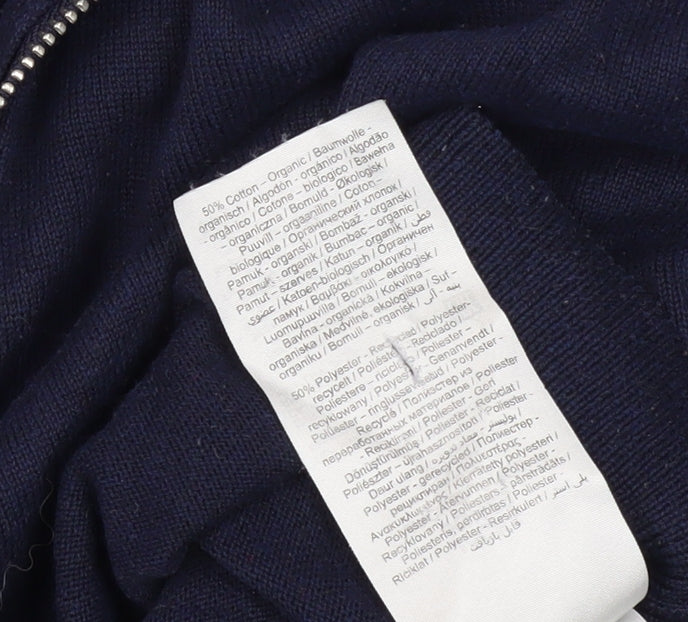 50% Cotton - Organic / Baumwolle -
organisch / Algodón - orgánico / Algodão
- orgânico / Cotone - biologico / Bawełna
- organiczna / Bomuld - Økologisk /
Puuvill - orgaaniline / Coton -
biologique / Органический хлопок /
Pamuk - organski / Bombaž - organski /
Pamuk - organik / Bumbac - organic /
Pamut - szerves / Katun - organik / قطن
عضوي / Katoen-biologisch / Органичен
памук / Βαμβάκι - οικολογικό /
Luomupuuvilla / Bomull - ekologisk /
Bavlna - organická / Kokvilna -
organiska / Medvilnė, ekologiška /
organiku / Bomull - organisk / پنبه - آلی
50% Polyester - / Polyester-
recycelt / - Reciclado /
Poliestere - / Poliester -
recyklowany / Genanvendt /
Polüester - / Polyester -
Recyclé / Полиэстер из
переработанных материалов / Poliester
- / Poliester - Geri
Dönüştürülmüş / Poliester - Reciclat /
Poliészter - újrahasznosított / Poliester-
Daur ulang / بوليستر - معاد تدويره /
Polyester - gerecycled / Полиестер -
рециклиран / Πολυεστέρας -
/ Kierrätetty polyesteri /
Polyester - Återvunnen / Polyester -
Recyklovaný / Poliesters - pārstrādāts /
Poliesteris, perdirbtas / Poliester -
Riciklat / Polyester - Resirkulert / پلی استر
قابل بازیافت